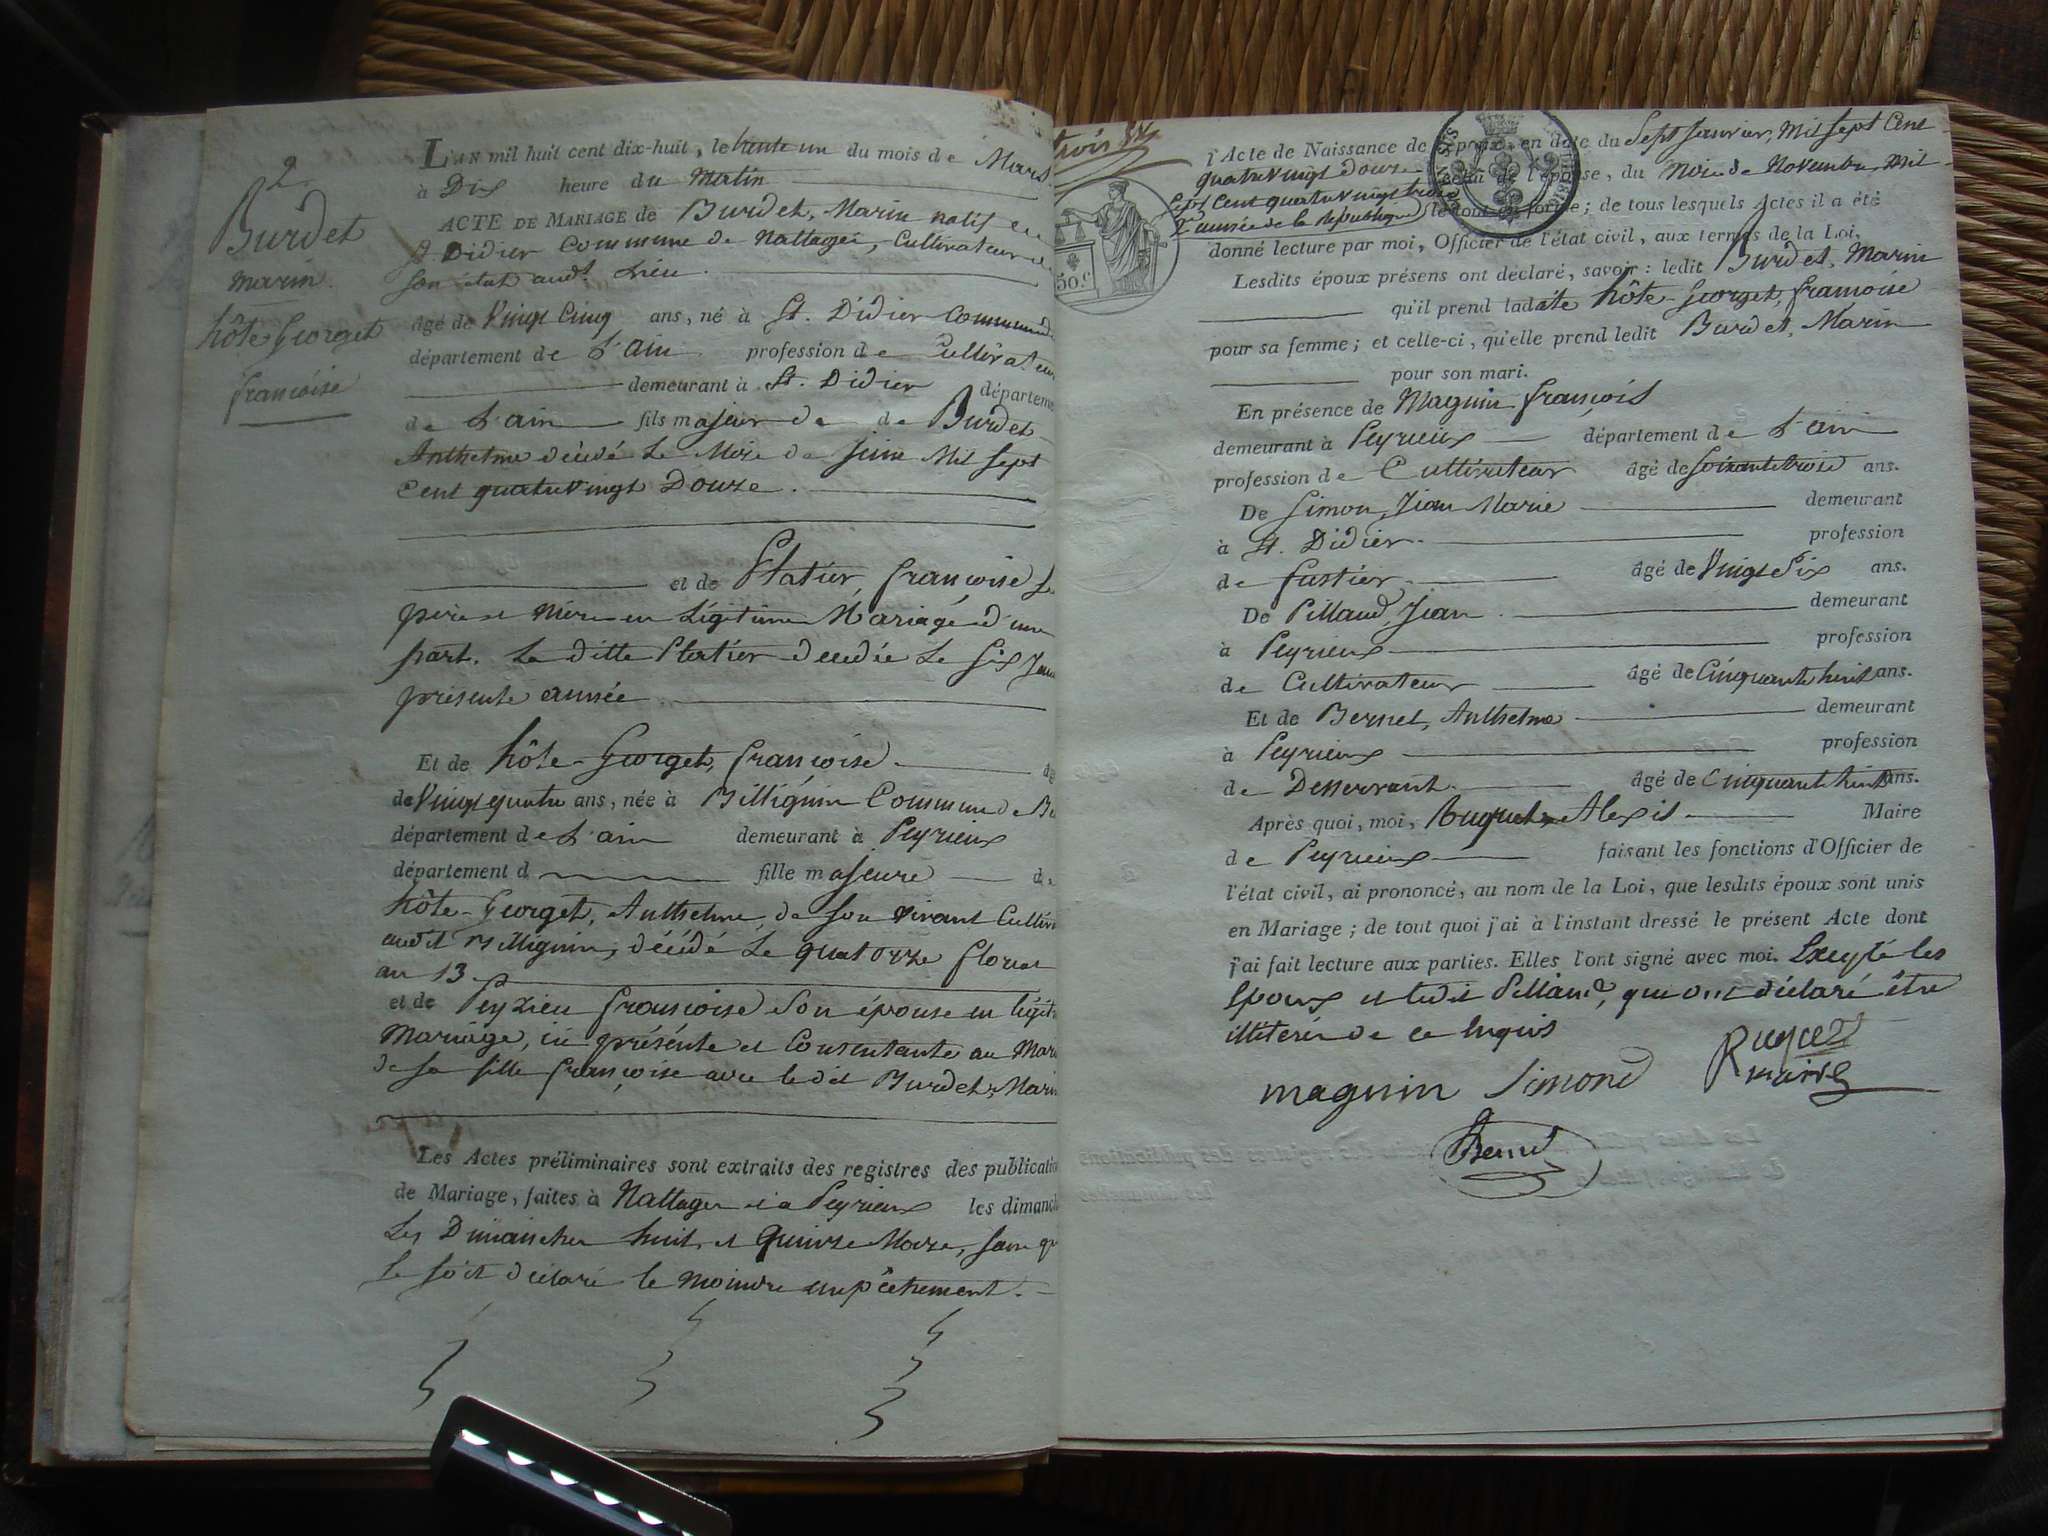 2
Burdet
Marin
hôte Georget
françoise
L'AN mil huit cent dix-huit, le trente un du mois de Mars
à Dix heure du Matin
ACTE DE MARIAGE de Burdet, Marin natif de
St Didier Commune de Nattages, Cultivateur de
son état audt. Lieu.
âgé de Vingt Cinq ans, né à St. Didier Commune
département de L'ain profession de Cultivateur
demeurant à St. Didier départeme
de L'ain fils majeur de de Burdet
Anthelme décédé Le Mois de Juin Mil Sept
Cent quatre Vingt Douze.
et de Platier, françoise Le
père et Mere en Légitime Mariage d'une
part. La ditte Platier décédée Le Six Jan
présente année
Et de hôte-Georget, françoise
de Vingt quatre ans, née à Billignin Commune de Be
département de L'ain demeurant à Peyrieux
département d fille majeure d
hôte-Georget, Anthelme, de son vivant Cultiv
audit Billignin, décédé Le quatorze floreal
an 13
et de Peyzieu françoise son épouse en légit
Mariage, ici présente et Consentante au Mari
de sa fille françoise avec ledit Burdet, Marin
Les Actes préliminaires sont extraits des registres des publicatio
de Mariage, faites à Nattages et a Peyrieux les dimanch
Les Dimanches huit et Quinze Mars, sans qu
Le soit déclaré le moindre empêchement.
trois
50.c
l'Acte de Naissance de l'époux, en date du Sept Janvier, Mil Sept Cent
quatre vingt douze celui de l'épouse, du Mois de Novembre Mil
Sept Cent quatre vingt treize
L'année de la République le tout en forme; de tous lesquels Actes il a été
donné lecture par moi, Officier de l'état civil, aux termes de la Loi.
Lesdits époux présens ont déclaré, savoir: ledit Burdet, Marin
qu'il prend ladite hôte-Georget, françoise
pour sa femme; et celle-ci, qu'elle prend ledit Burdet, Marin
pour son mari.
En présence de Magnin françois
demeurant à Peyrieux département de L'ain
profession de Cultivateur âgé de Soixante trois ans.
De Simon, Jean Marie demeurant
à St. Didier. profession
de fustier. âgé de Vingt Six ans.
De Pillaud, Jean. demeurant
à Peyrieux profession
de Cultivateur âgé de Cinquante huit ans.
Et de Bernet, Anthelme demeurant
à Peyrieux profession
de Desservant. âgé de Cinquante huit ans.
Après quoi, moi, Ruguet, Alexis Maire
de Peyrieux faisant les fonctions d'Officier de
l'état civil, ai prononcé, au nom de la Loi, que lesdits époux sont unis
en Mariage; de tout quoi j'ai à l'instant dressé le présent Acte dont
j'ai fait lecture aux parties. Elles l'ont signé avec moi. Excepté les
Epoux et ledit Pillaud, qui ont déclaré être
illitérés de ce Enquis
magnin Simond Ruguet
maire